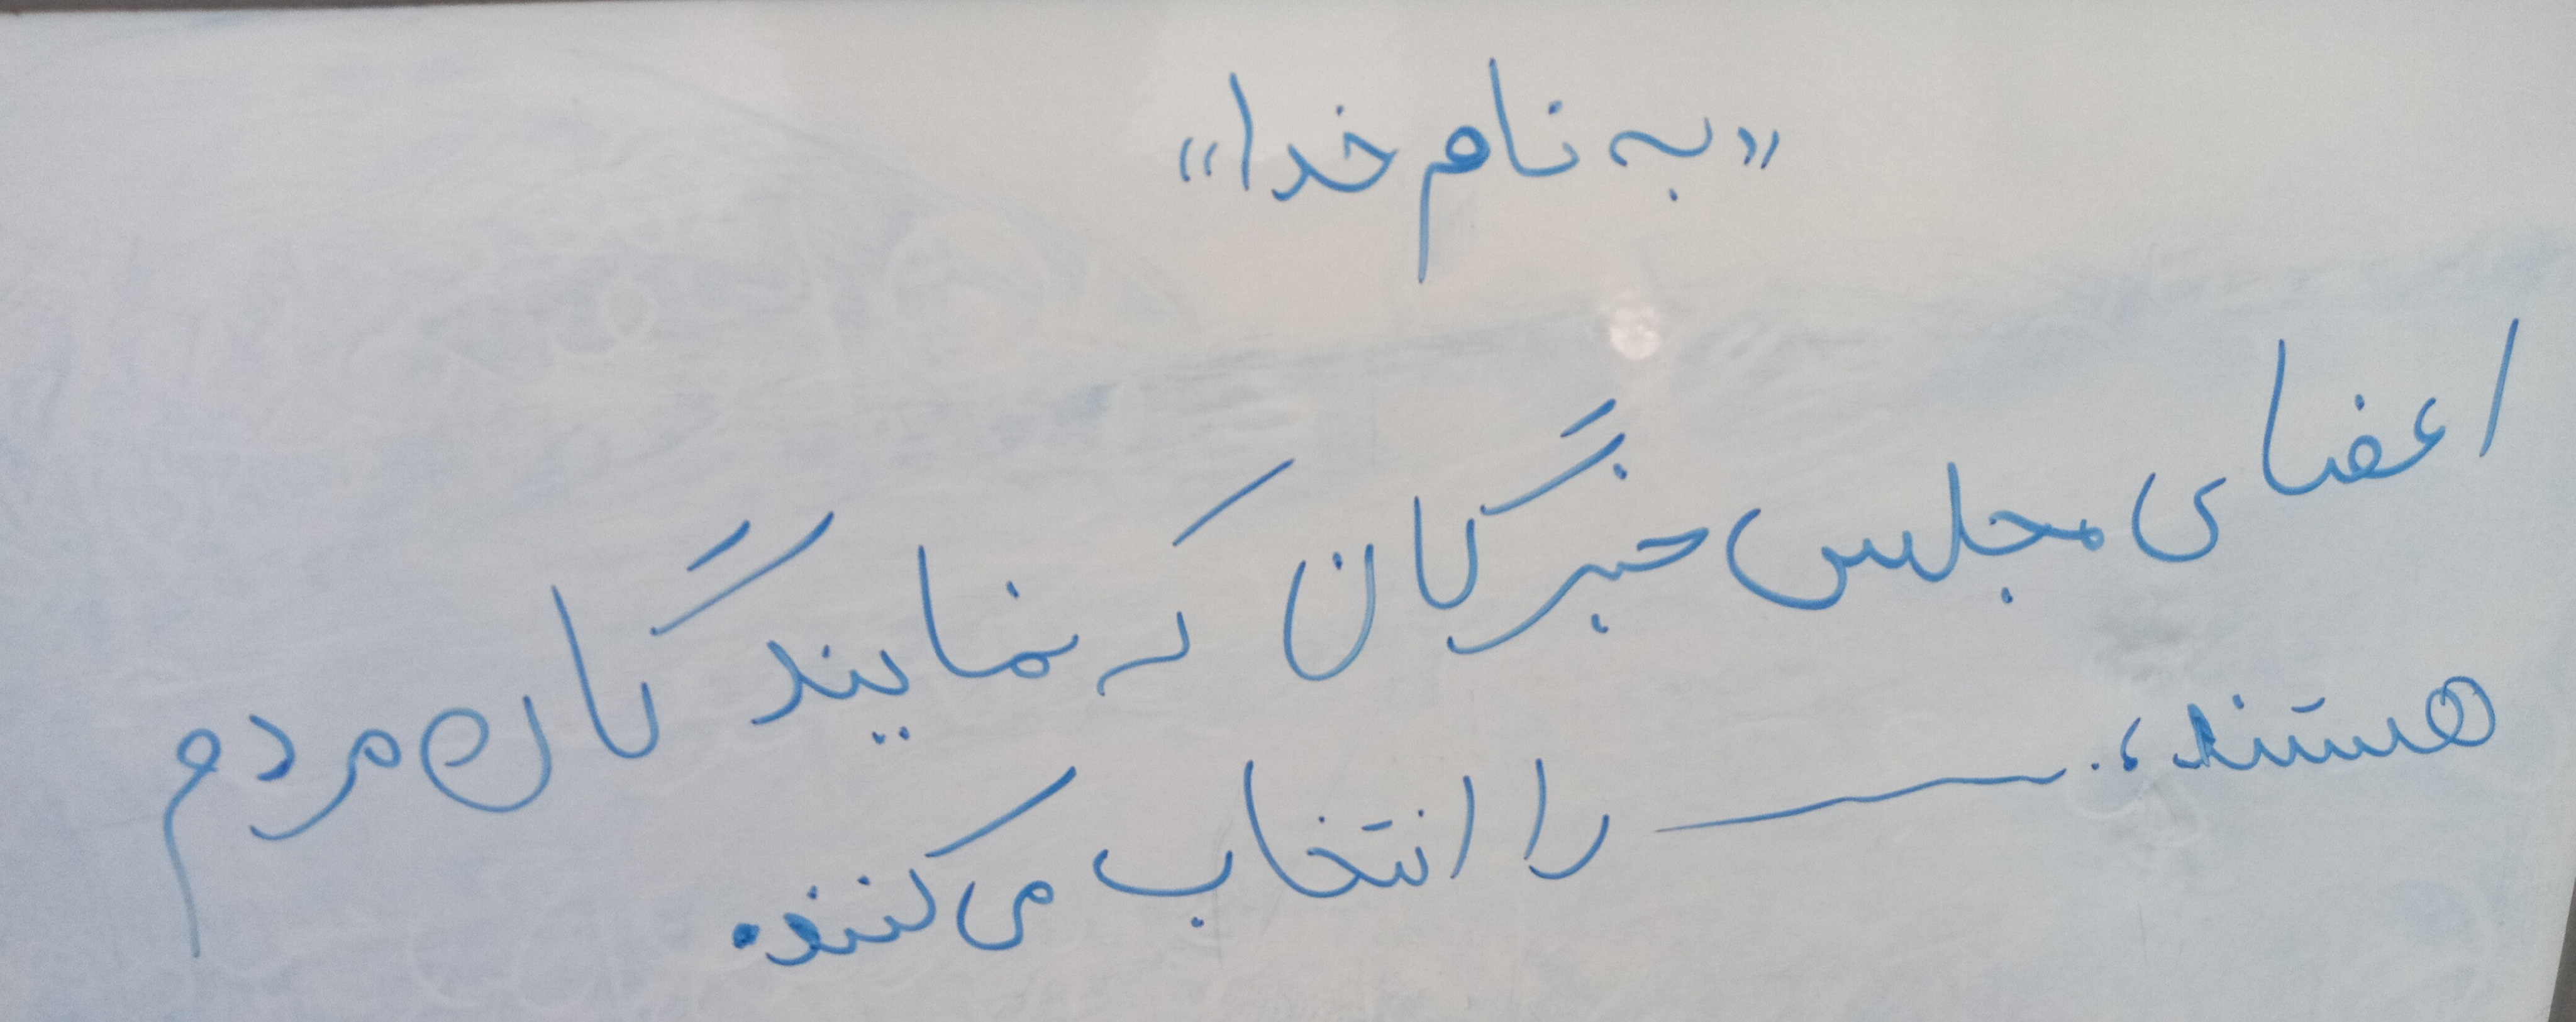 «به نام خدا»
اعضای مجلس خبرگان که نمایندگان مردم
هستند، ــــــــــ را انتخاب می‌کنند.